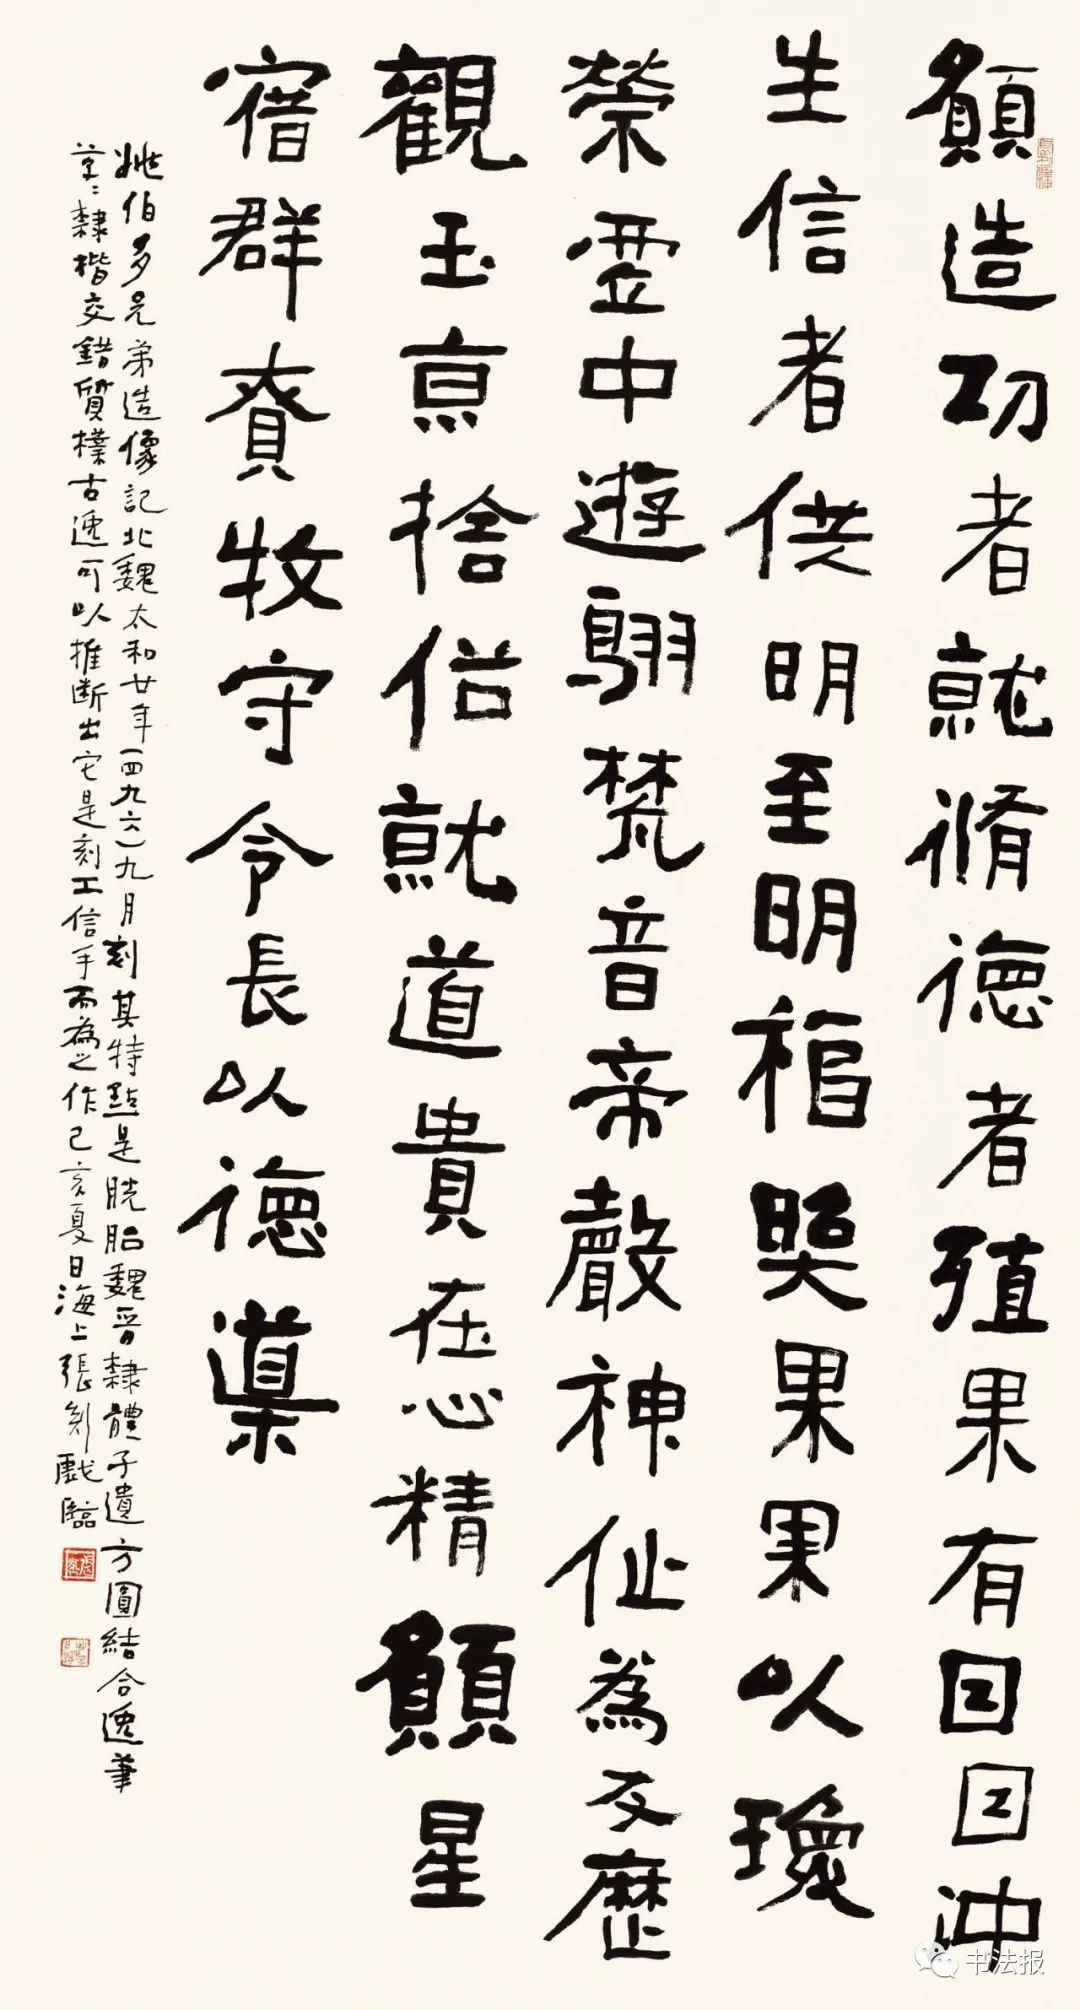 願造功者就脩德者殖果有因因沖
生信者供明至明棺㷼果果以瓊
榮靈中遊翱梵音帝聲神仙為友歷
觀玉京捨俗就道貴在心精願星
宿群賚牧守令長以德導
姚伯多兄弟造像記北魏太和廿年(四九六)九月刻其特點是脫胎魏晉隸體子遺方圓結合逸筆
草草隸楷交錯質樸古逸可以推斷出它是刻工信手而為之作己亥夏日海上張剑戲臨
书法报